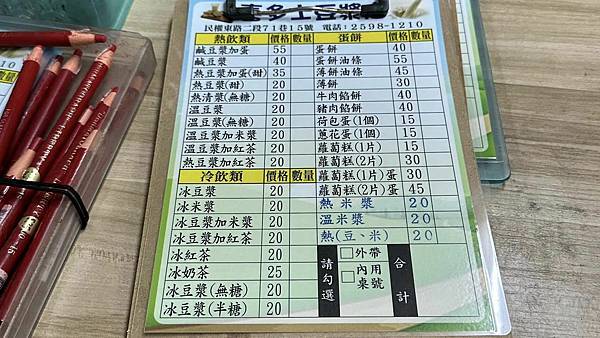 喜多士豆漿
民權東路二段71巷15號 電話:2598-1210
熱飲類 價格 數量 蛋餅 價格 數量
鹹豆漿加蛋 55 蛋餅 40
鹹豆漿 40 蛋餅油條 55
熱豆漿加蛋(甜) 35 薄餅油條 45
熱豆漿(甜) 20 薄餅 30
熱清漿(無糖) 20 牛肉餡餅 40
溫豆漿 20 豬肉餡餅 40
溫豆漿(無糖) 20 荷包蛋(1個) 15
溫豆漿加米漿 20 蔥花蛋(1個) 15
溫豆漿加紅茶 20 蘿蔔糕(1片) 15
熱豆漿加紅茶 20 蘿蔔糕(2片) 30
冷飲類 價格 數量 蘿蔔糕(1片)蛋 30
冰豆漿 20 蘿蔔糕(2片)蛋 45
冰米漿 20 熱米漿 20
冰豆漿加米漿 20 溫米漿 20
冰豆漿加紅茶 20 熱(豆、米) 20
冰紅茶 20
冰奶茶 25
冰豆漿(無糖) 20
冰豆漿(半糖) 20
請勾選
□外帶
□內用
桌號
合計